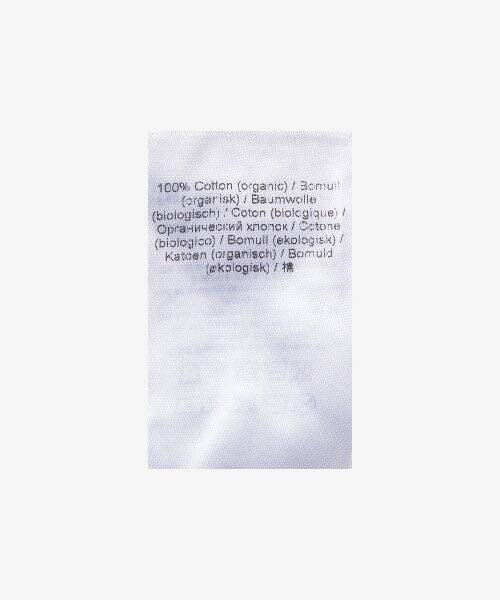 100% Cotton (organic) / Bomull
(organisk) / Baumwolle
(biologisch) / Coton (biologique) /
Органический хлопок / Cotone
(biologico) / Bomull (økologisk) /
Katoen (organisch) / Bomuld
(økologisk) /